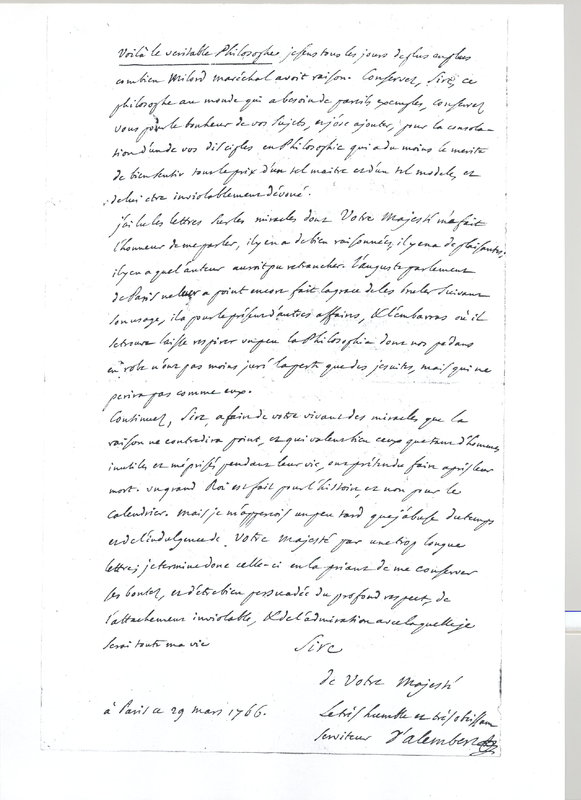 Voilà le veritable Philosophe, je sens tous les jours de plus en plus
combien Milord maréchal avoit raison. Conservez, Sire, ce
philosophe au monde qui a besoin de pareils exemples, conservez
vous pour le bonheur de vos sujets, et j'ose ajouter, pour la consola-
tion d'un de vos disciples en Philosophie qui a du moins le merite
de bien sentir tout le prix d'un tel maitre et d'un tel modele, et
de lui etre inviolablement dévoué.
J'ai lu les lettres sur les miracles dont Votre Majesté m'a fait
l'honneur de me parler, il y en a de bien raisonnées, il y en a de plaisantes,
il y en a que l'auteur auroit pu retrancher. L'auguste parlement
de Paris ne leur a point encore fait la grace de les bruler suivant
son usage, il a pour le présent d'autres affaires, & l'embarras où il
se trouve laisse respirer un peu la Philosophie dont nos pedans
en robe n'ont pas moins juré la perte que des jesuites, mais qui ne
perira pas comme eux.
Continuez, Sire, a faire de votre vivant des miracles que la
raison ne contredira point, et qui valent bien ceux que tant d'hommes
inutiles et méprisés pendant leur vie, ont prétendu faire après leur
mort. un grand Roi est fait pour l'histoire, et non pour le
calendrier. Mais je m'apperçois un peu tard que j'abuse du temps
et de l'indulgence de Votre Majesté par une trop longue
lettre; je termine donc celle-ci en la priant de me conserver
ses bontés, et d'être bien persuadée du profond respect, de
l'attachement inviolable, & de l'admiration avec laquelle je
serai toute ma vie
Sire
de Votre Majesté
à Paris ce 29 mars 1766.
Le très humble et très obeissant
serviteur D'alembert